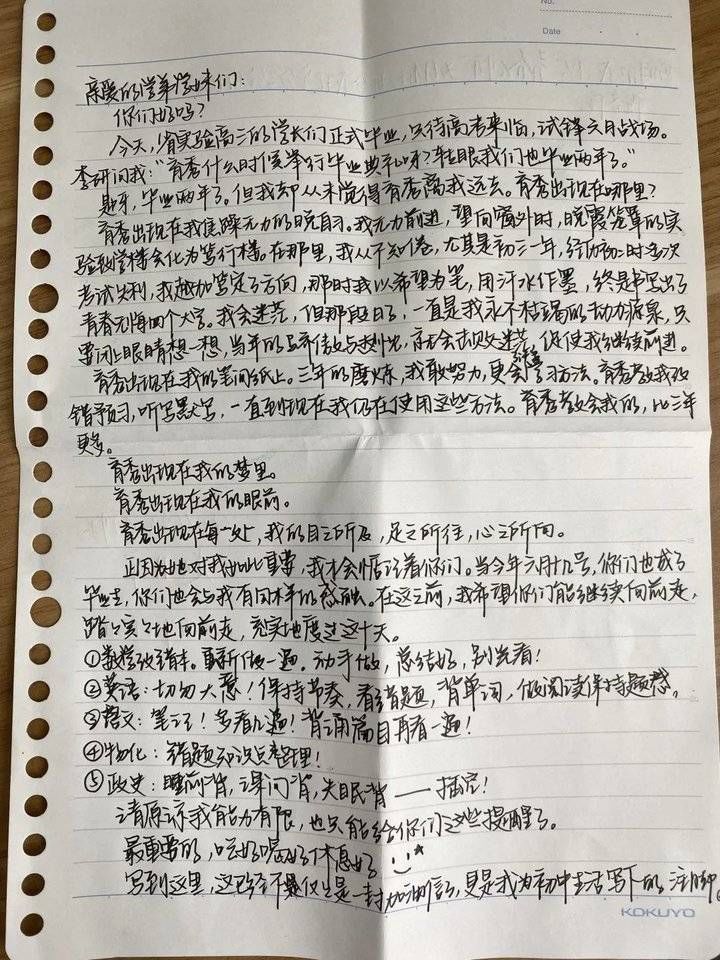 No.
Date
亲爱的学弟学妹们：
你们好吗？
今天，省实验高三的学长们正式毕业，只待高考来临，试锋六月战场。
李研问我："育秀什么时候举行毕业典礼呀？转眼我们也毕业两年了。"
是呀，毕业两年了。但我却从未觉得育秀离我远去。育秀出现在哪里？
育秀出现在我焦躁无力的晚自习。我无力前进，望向窗外时，晚霞笼罩的实
验教学楼会化为笃行楼。在那里，我从不知倦，尤其是初三一年，经历初二时多次
考试失利，我越加笃定了方向，那时我以希望为笔，用汗水作墨，终是书写出了
青春无悔四个大字。我会迷茫，但那段日子，一直是我永不枯竭的动力源泉，只
要闭上眼睛想一想，当年的骄傲与我，就会击败迷茫，促使我继续前进。
育秀出现在我的笔间纸上。三年的磨炼，我敢努力，更会学习方法。育秀教我改
错预习，听写默写，一直到现在我仍在使用这些方法。育秀教会我的，比三年
更多。
育秀出现在我的梦里。
育秀出现在我的眼前。
育秀出现在每一处，我的目之所及，足之所往，心之所向。
正因为她对我如此重要，我才会惦记着你们。当今年六月十九号，你们也成了
毕业生，你们也会与我有同样的感触。在这之前，我希望你们能继续向前走，
踏踏实实地向前走，充实地度过这十天。
①数学改错本。重新做一遍。动手做，总结好，别光看！
②英语：切勿大意！保持节奏，看错题，背单词，做阅读保持题感。
③语文：笔记！多看几遍！背诵篇目再看一遍！
④物化：错题知识点整理！
⑤政史：睡前背，课间背，失眠背——搞定！
请原谅我能力有限，也只能给你们这些提醒了。
最重要的，吃好喝好休息好
写到这里，这已经不仅仅是一封加油信，更是我为初中生活写下的注脚。
KOKUYO